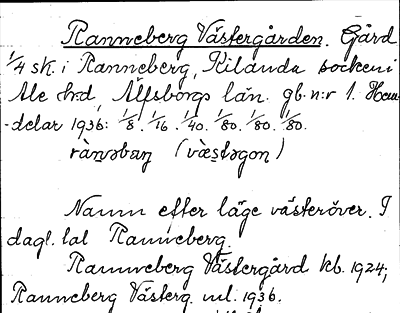 Ranneberg Västergården. Gård
1/4 sk. i Ranneberg, Kilanda socken i
Ale hrd, Älfsborgs län. gb. n:r 1. Hem-
delar 1936: 1/8. 1/16. 1/40. 1/80. 1/80. 1/80.
rànəbæŋ (væstəgon)
Namn efter läge västeröver. I
dagl. tal Ranneberg.
Ranneberg Västergård kb. 1924;
Ranneberg Västerg. ml. 1936.